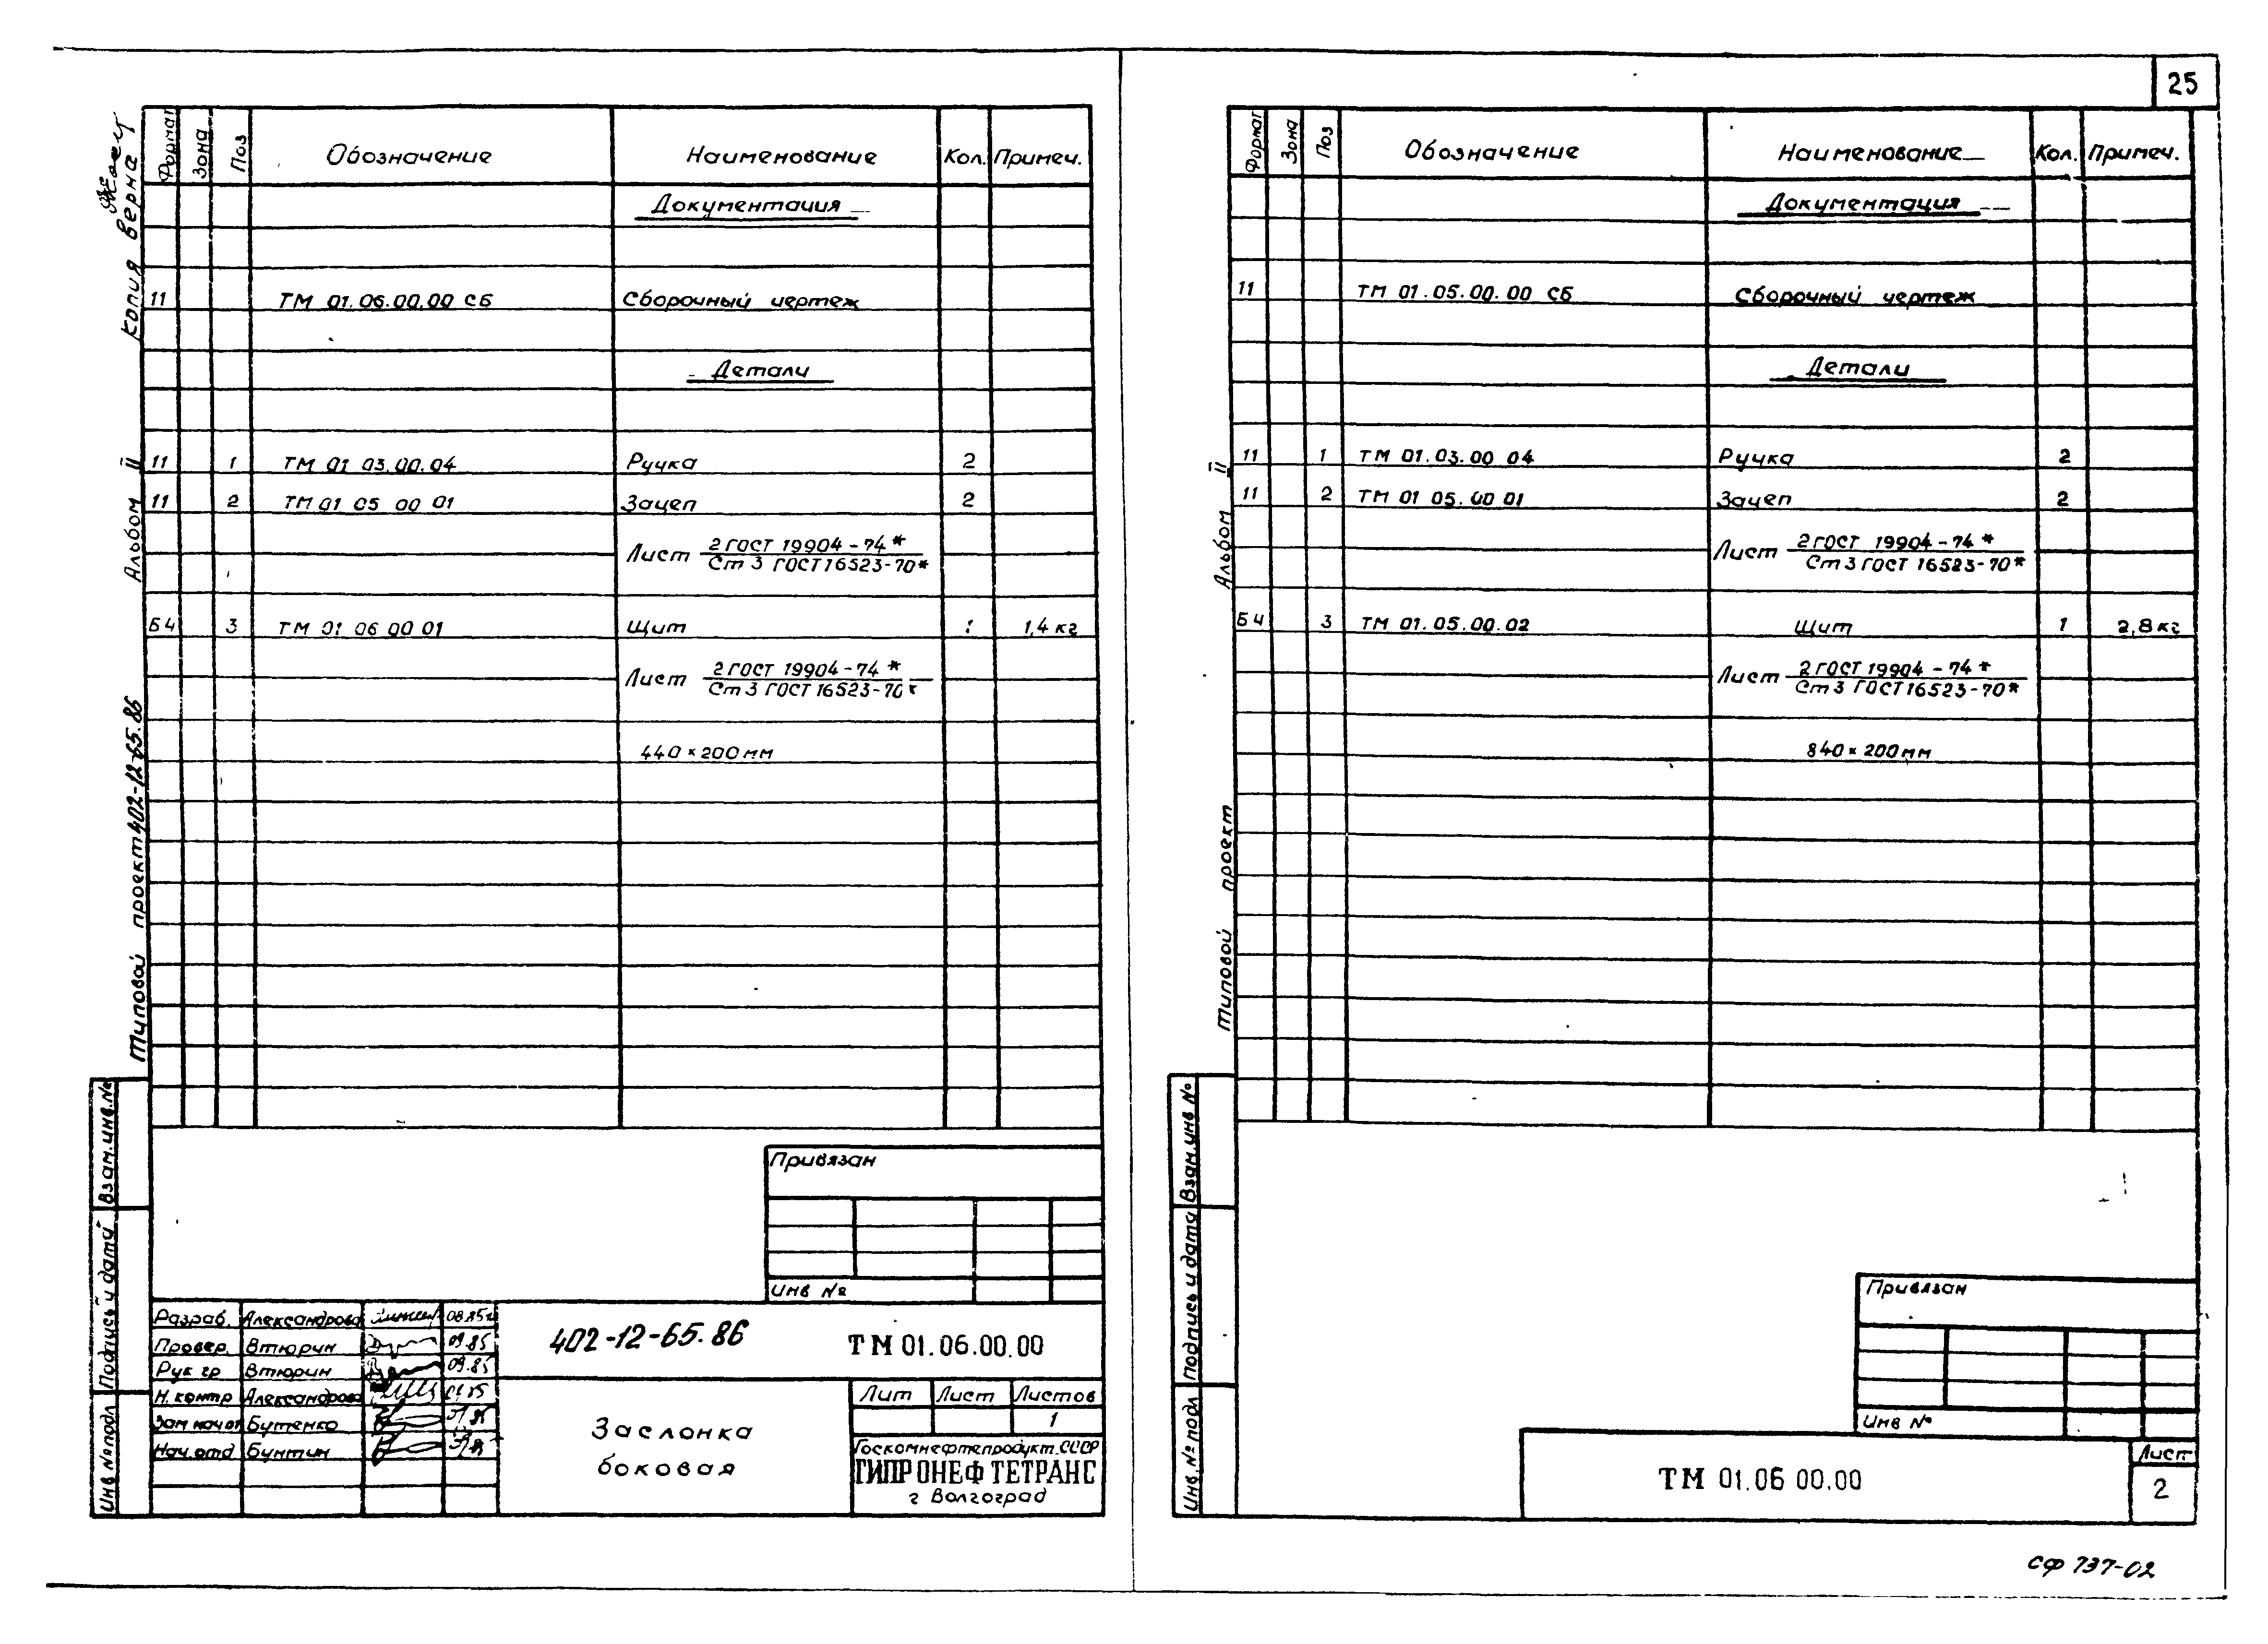 25
Копия верна
Альбом II
Типовой проект 402-12-65.86
Формат Зона Поз Обозначение Наименование Кол. Примеч.
Документация
11 ТМ 01.06.00.00 СБ Сборочный чертеж
Детали
11 1 ТМ 01 03.00.04 Ручка 2
11 2 ТМ 01 05 00 01 Зацеп 2
Лист 2 ГОСТ 19904-74*
Ст 3 ГОСТ 16523-70*
Б4 3 ТМ 01 06 00 01 Щит 1 1,4 кг
Лист 2 ГОСТ 19904-74*
Ст 3 ГОСТ 16523-70*
440×200 мм
Взам.инв.№
Подпись и дата
Инв №подл
Привязан
Инв №
Разраб. Александрова 08.85г
Провер. Втюрин 09.85
Рук гр Втюрин 09.85
Н. контр Александрова
Зам нач от Бутенко
Нач.отд Бунтин
402-12-65.86 ТМ 01.06.00.00
Заслонка
боковая
Лит Лист Листов
1
Госкомнефтепродукт СССР
ГИПРОНЕФТЕТРАНС
г Волгоград
Альбом II
Типовой проект
Формат Зона Поз Обозначение Наименование Кол. Примеч.
Документация
11 ТМ 01.05.00.00 СБ Сборочный чертеж
Детали
11 1 ТМ 01.03.00 04 Ручка 2
11 2 ТМ 01 05.00 01 Зацеп 2
Лист 2 ГОСТ 19904-74*
Ст 3 ГОСТ 16523-70*
Б4 3 ТМ 01.05.00.02 Щит 1 2,8 кг
Лист 2 ГОСТ 19904-74*
Ст 3 ГОСТ 16523-70*
840×200 мм
Взам.инв №
Подпись и дата
Инв.№ подл
Привязан
Инв №
ТМ 01.06 00.00
Лист
2
СФ 737-02